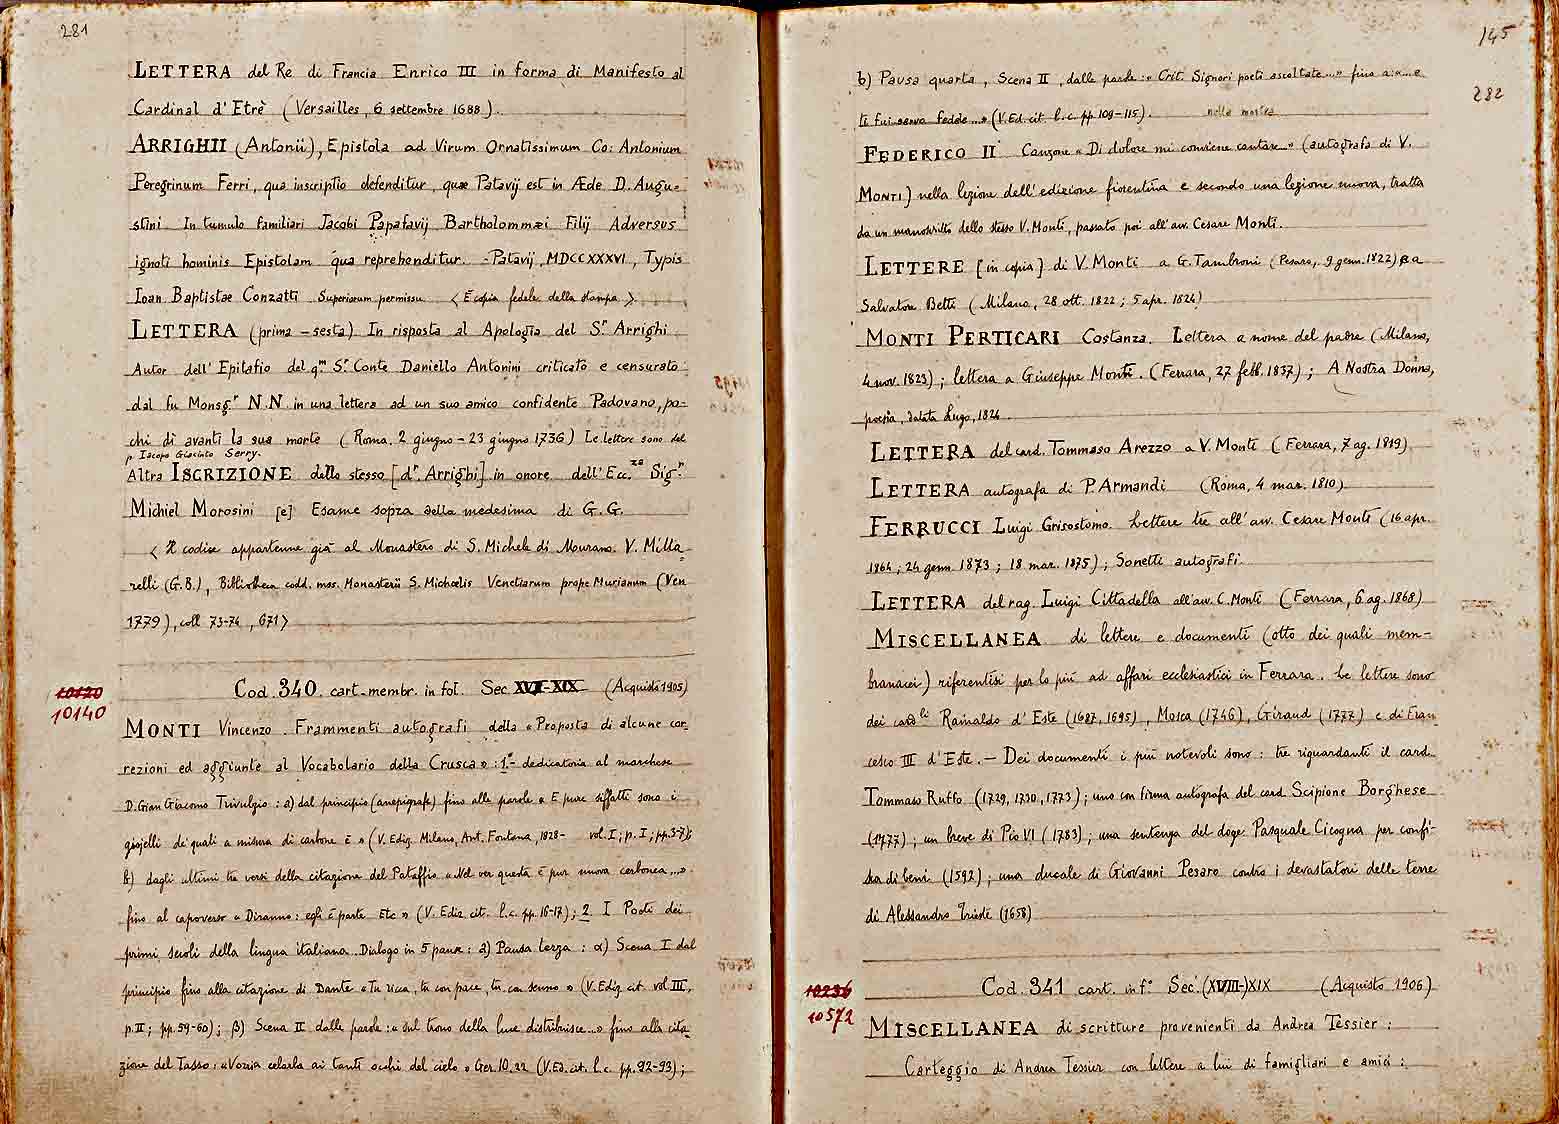 281
LETTERA del Re di Francia Enrico III in forma di Manifesto al
Cardinal d'Etrè (Versailles, 6 settembre 1688).
ARRIGHII (Antonii), Epistola ad Virum Ornatissimum Co: Antonium
Peregrinum Ferri, qua inscriptio defenditur, quæ Patavij est in Æde D. Augu=
stini In tumulo familiari Jacobi Papafavij Bartholommæi Filij Adversus
ignoti hominis Epistolam qua reprehenditur. - Patavij, MDCCXXXVI, Typis
Ioan. Baptistae Conzatti Superiorum permissu < È copia fedele della stampa >
LETTERA (prima - sesta) In risposta al Apologia del S.r Arrighi
Autor dell'Epitafio del q.m S.r Conte Daniello Antonini criticato e censurato
dal fu Monsg.r N.N. in una lettera ad un suo amico confidente Padovano, po-
chi dì avanti la sua morte (Roma, 2 giugno - 23 giugno 1736) Le lettere sono del
p. Iacopo Giacinto Serry.
Altra ISCRIZIONE dello stesso [d.r Arrighi] in onore dell'Ecc.za Sig.r
Michiel Morosini [e] Esame sopra della medesima di G. G.
< Il codice appartenne già al Monastero di S. Michele di Mourano. V. Mitta=
relli (G.B.), Bibliotheca codd. mss. Monasterii S. Michaelis Venetiarum prope Murianum (Ven
1779), coll 73-74, 671>
10120
10140
Cod. 340. cart. membr. in fol. Sec. XVI-XIX (Acquisto 1905)
MONTI Vincenzo. Frammenti autografi della «Proposta di alcune cor
rezioni ed aggiunte al Vocabolario della Crusca»: 1.° - dedicatoria al marchese
D. Gian Giacomo Trivulzio: a) dal principio (anepigrafe) fino alle parole «E pure siffatti sono i
giojelli de' quali a misura di carbone è» (V. Ediz. Milano, Ant. Fontana, 1828- vol. I; p. I; pp. 3-7);
b) dagli ultimi tre versi della citazione del Pataffio «Nel ver questa è pur nuova carbonea...»
fino al capoverso «Diranno: egli è parte etc.» (V. Ediz. cit. l.c. pp. 16-17); 2. I Poeti dei
primi secoli della lingua italiana. Dialogo in 5 pause: a) Pausa terza: α) Scena I dal
principio fino alla citazione di Dante «Tu ricca, tu con pace, tu con senno» (V. Ediz. cit. vol III,
p. II; pp. 59-60); β) Scena II dalle parole: «sul trono della luce distribuisce...» fino alla cita
zione del Tasso: «Vorria celarla ai tanti occhi del cielo» Ger. 10. 22 (V. Ed. cit. l.c. pp. 92-93);
145
282
b) Pausa quarta, Scena II, dalle parole: «Crit. Signori poeti ascoltate...» fino a: «...e
te fui servo fedele...» (V. Ed. cit. l.c. pp 109-115). nella mostra
FEDERICO II Canzone «Di dolore mi conviene cantare» (autografa di V.
MONTI) nella lezione dell'edizione fiorentina e secondo una lezione nuova, tratta
da un manoscritto dello stesso V. Monti, passato poi all'avv. Cesare Monti.
LETTERE [in copia] di V. Monti a G. Tambroni (Pesaro, 9 genn. 1822) e a
Salvatore Betti (Milano, 28 ott. 1822; 5 apr. 1824)
MONTI PERTICARI Costanza. Lettera a nome del padre (Milano,
4 nov. 1823); lettera a Giuseppe Monti. (Ferrara, 27 febb. 1837); A Nostra Donna,
poesia, datata Lugo, 1824.
LETTERA del card. Tommaso Arezzo a V. Monti (Ferrara, 7 ag. 1819)
LETTERA autografa di P. Armandi (Roma, 4 mar. 1810)
FERRUCCI Luigi Grisostomo. Lettere tre all'avv. Cesare Monti (16 apr.
1864; 24 genn 1873; 18 mar. 1875); Sonetti autografi.
LETTERA del rag. Luigi Cittadella all'avv. C. Monti (Ferrara, 6 ag. 1868)
MISCELLANEA di lettere e documenti (otto dei quali mem-
branacei) riferentisi per lo più ad affari ecclesiastici in Ferrara. Le lettere sono
dei card.li Rainaldo d'Este (1687, 1695), Mosca (1746), Giraud (1777) e di Fran
cesco III d'Este. - Dei documenti i più notevoli sono: tre riguardanti il card.
Tommaso Ruffo (1729, 1730, 1773); uno con firma autografa del card. Scipione Borghese
(1777); un breve di Pio VI (1783); una sentenza del doge Pasquale Cicogna per confi-
sca di beni (1592); una ducale di Giovanni Pesaro contro i devastatori delle terre
di Alessandro Trieste (1658)
10236
10572
Cod. 341 cart. in f.° Sec. (XVIII-)XIX (Acquisto 1906)
MISCELLANEA di scritture provenienti da Andrea Tessier:
Carteggio di Andrea Tessier con lettere a lui di famigliari e amici: